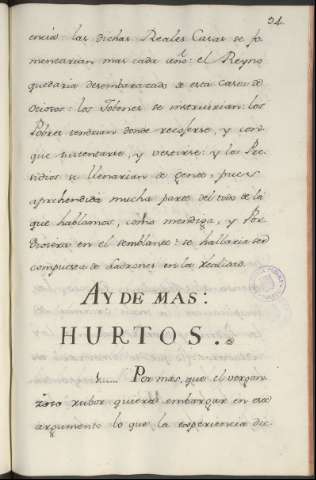 94.
encia las dichas Reales Casas se fo
mentarian mas cada año: el Reyno
quedaria desembarazado de esta Casta de
Ociosos: los Jobenes se instruirian: los
Pobres tendrian donde recojerse, y con
que sustentarse, y vestirse: y los Pre
sidios se llenarian de gente, pues
aprehendida mucha parte del todo de la
que hablamos, como mendiga, y Por
diosera en el semblante: se hallaria ser
compuesta de Ladrones en la realidad.
AY DE MAS:
HURTOS.
Por mas, que el vergon
zoso rubor quiera embargar en este
argumento lo que la experiencia dic